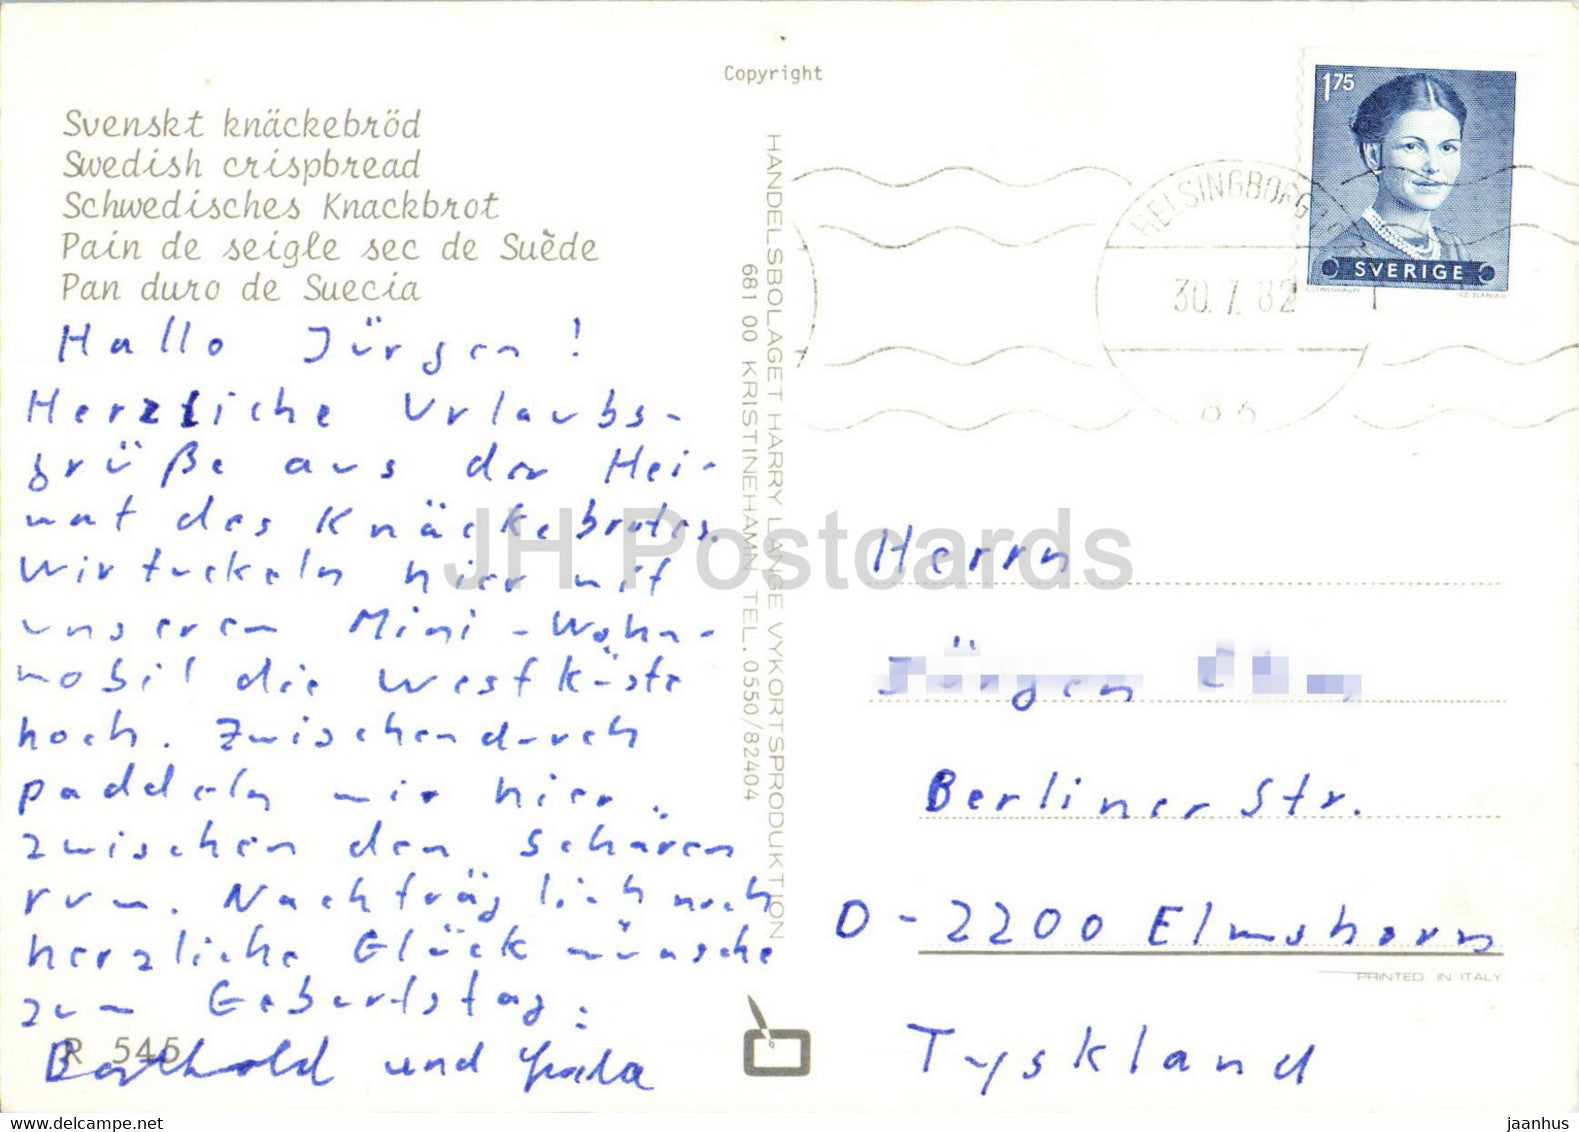 Copyright
Svenskt knäckebröd
Swedish crispbread
Schwedisches Knackbrot
Pain de seigle sec de Suède
Pan duro de Suecia
Hallo Jürgen!
Herzliche Urlaubs-
grüße aus der Hei-
mat des Knäckebrotes.
Wir tuckeln hier mit
unserem Mini-Wohn-
mobil die Westküste
hoch. Zwischendurch
paddeln wir hier
zwischen den Schären
rum. Nachträglich noch
herzliche Glückwünsche
zum Geburtstag:
Berthold und
R 545
HANDELSBOLAGET HARRY LANGE VYKORTSPRODUKTION
681 00 KRISTINEHAMN TEL. 0550/82404
1 75
SVERIGE
CZ. SLANIA
HELSINGBORG
30. 7. 82
Herrn
Jürgen
Berliner Str.
D-2200 Elmshorn
PRINTED IN ITALY
Tyskland
JH Postcards
www.delcampe.net
jaanhus